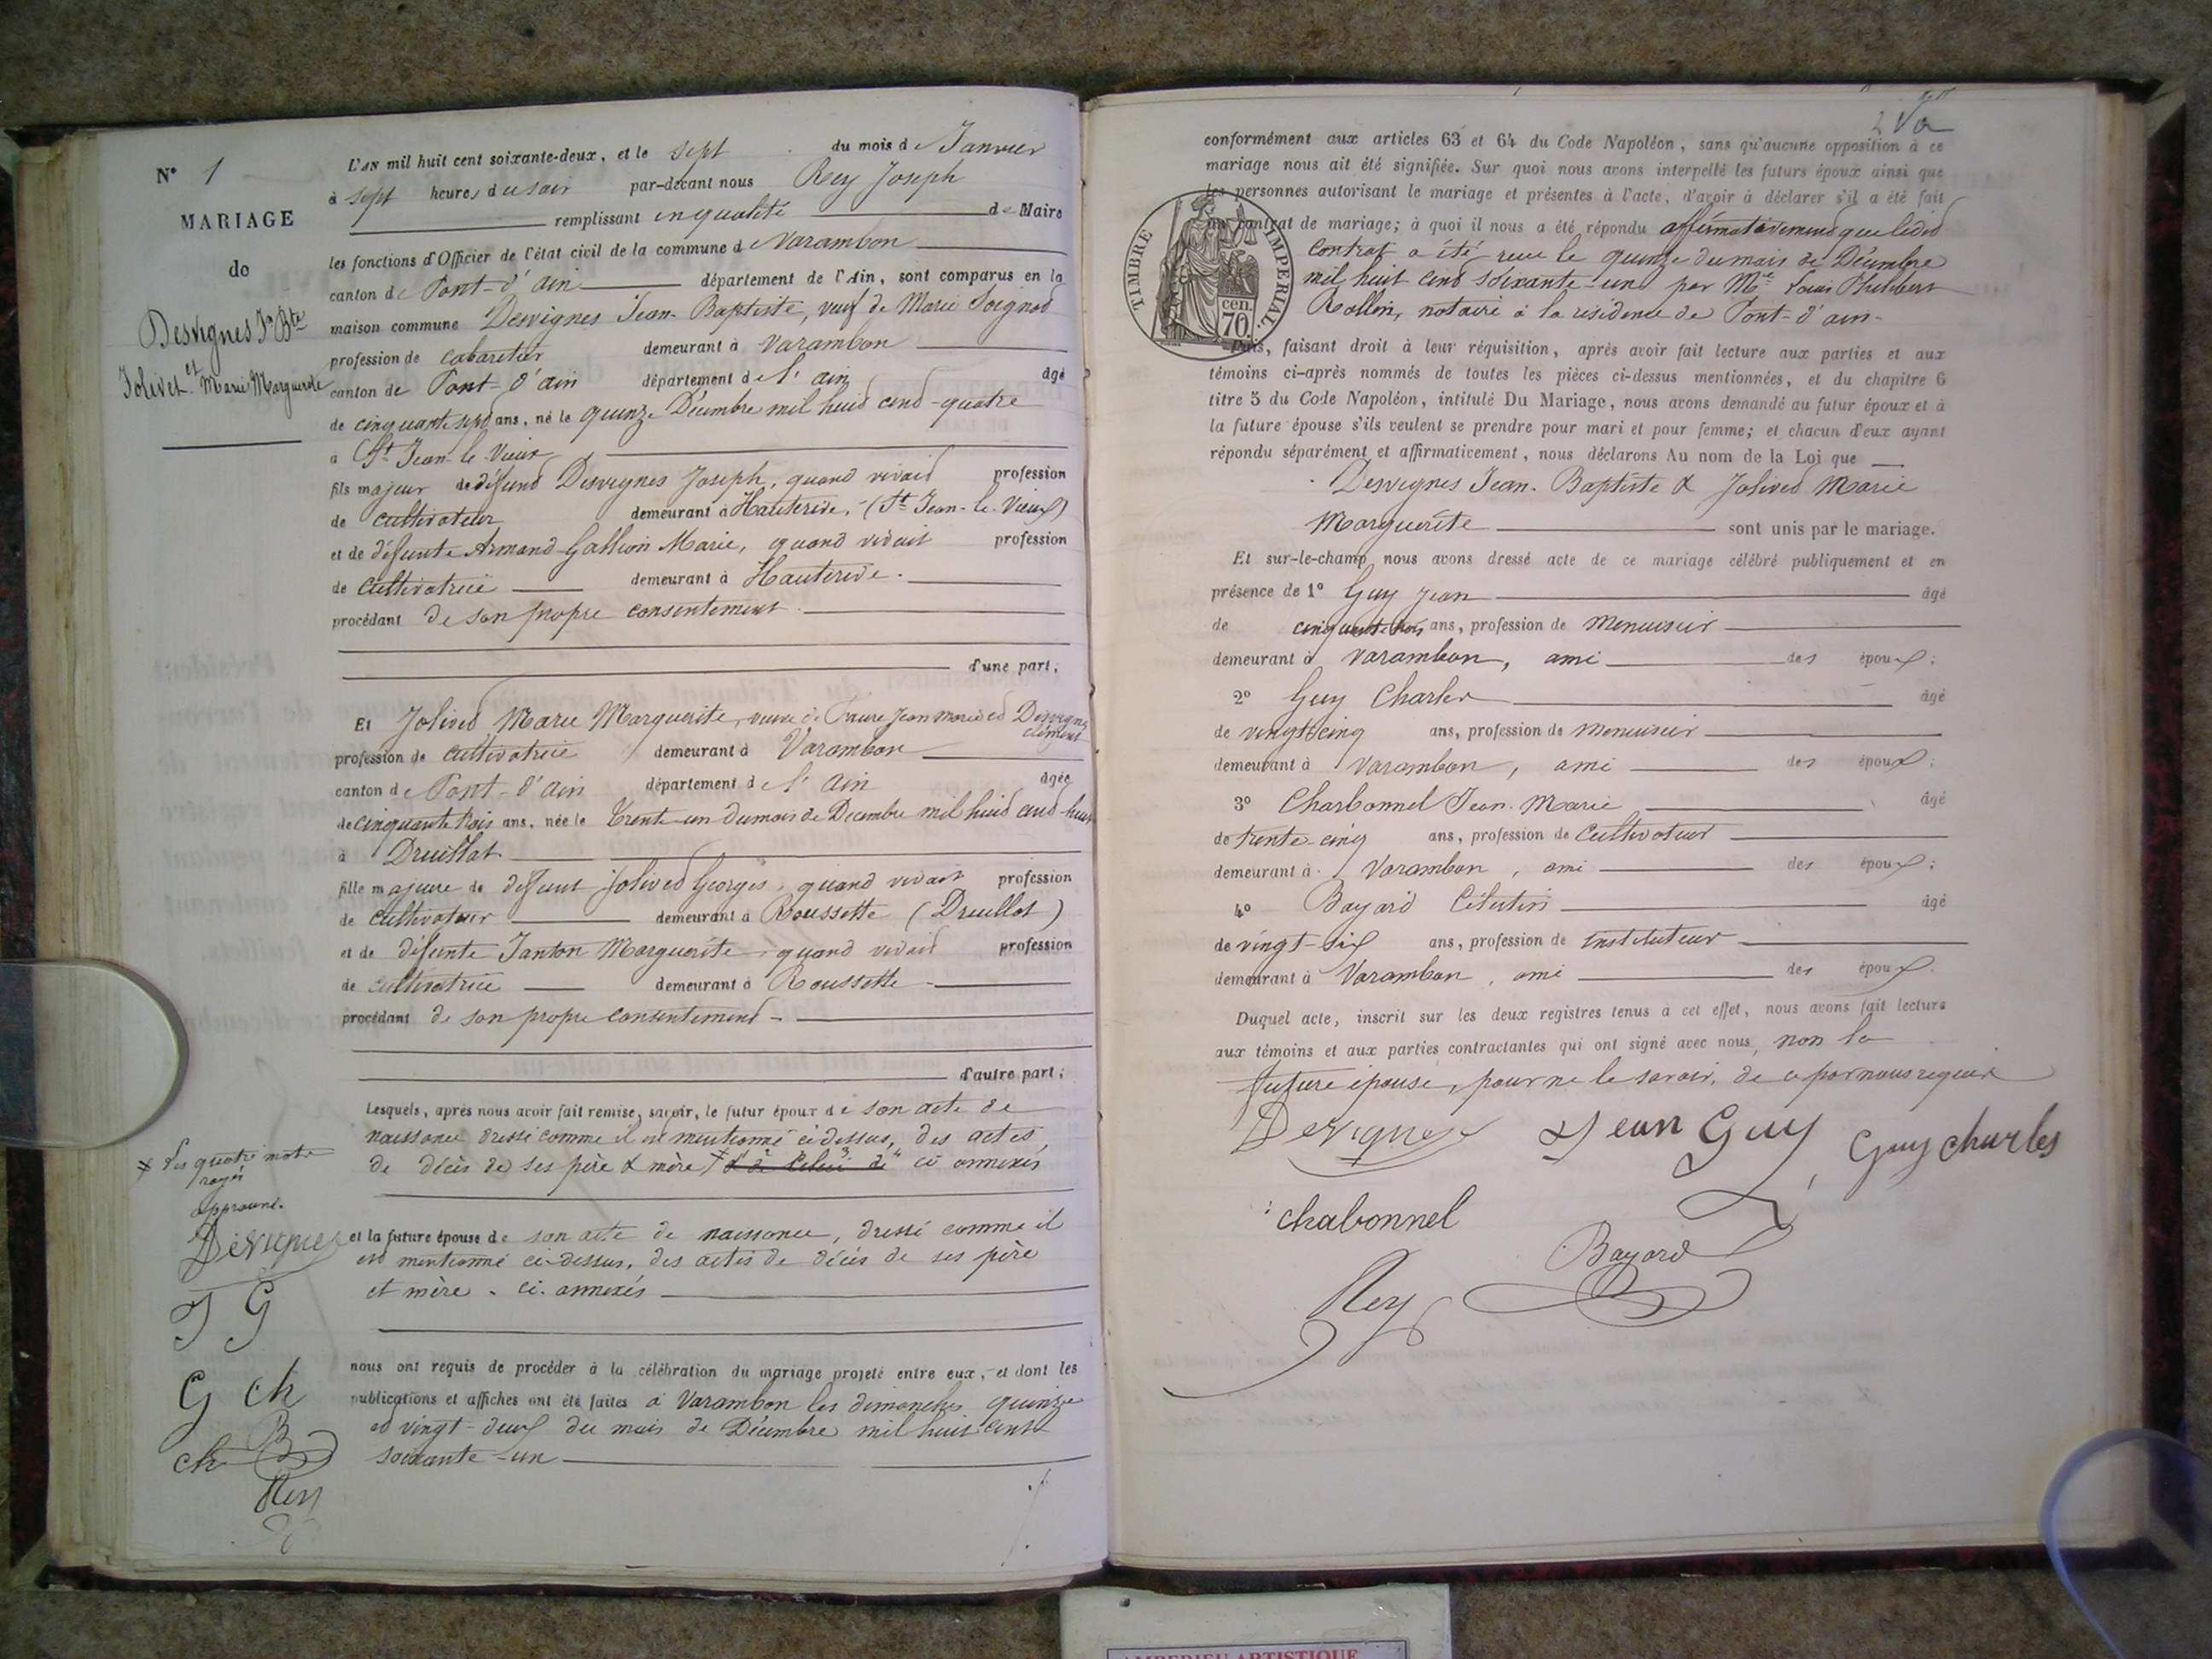 N° 1
MARIAGE
de
Desvignes Jn Bte
et
Jolivet Marie Marguerite
L'AN mil huit cent soixante-deux, et le sept du mois de Janvier
à sept heures du soir par-devant nous Rey Joseph
remplissant en qualité de Maire
les fonctions d'Officier de l'état civil de la commune de Varambon
canton de Pont-d'ain département de l'Ain, sont comparus en la
maison commune Desvignes Jean-Baptiste, veuf de Marie Soignod
profession de cabaretier demeurant à Varambon
canton de Pont-d'ain département de l'ain âgé
de cinquante sept ans, né le quinze Décembre mil huit cent-quatre
à St Jean-le-Vieux
fils majeur de défunt Desvignes Joseph, quand vivait profession
de cultivateur demeurant à Hauterive, (St Jean-le-Vieux)
et de défunte Armand-Gallion Marie, quand vivait profession
de cultivatrice demeurant à Hauterive.
procédant de son propre consentement.
d'une part;
Et Jolived Marie Marguerite, veuve de Faure Jean Marie et Desvignes
clément
profession de cultivatrice demeurant à Varambon
canton de Pont-d'ain département de l'ain âgée
de cinquante trois ans, née le trente-un du mois de Décembre mil huit cent-huit
à Druillat.
fille majeure de défunt Jolived Georges, quand vivait profession
de cultivateur demeurant à Roussette (Druillat)
et de défunte Janton Marguerite, quand vivait profession
de cultivatrice demeurant à Roussette
procédant de son propre consentement
d'autre part;
Lesquels, après nous avoir fait remise, savoir, le futur époux de son acte de
naissance dressé comme il est mentionné ci-dessus, des actes
de décès de ses père & mère & de celui de ci annexés
les quatre mots
rayés
approuvé.
et la future épouse de son acte de naissance, dressé comme il
est mentionné ci-dessus, des actes de décès de ses père
et mère. ci-annexés
Desvignes
J G
G ch
ch B
Rey
nous ont requis de procéder à la célébration du mariage projeté entre eux, et dont les
publications et affiches ont été faites à Varambon les dimanches quinze
et vingt-deux du mois de Décembre mil huit cent
soixante-un
conformément aux articles 63 et 64 du Code Napoléon, sans qu'aucune opposition à ce
mariage nous ait été signifiée. Sur quoi nous avons interpellé les futurs époux ainsi que
les personnes autorisant le mariage et présentes à l'acte, d'avoir à déclarer s'il a été fait
un contrat de mariage; à quoi il nous a été répondu affirmativement que ledit
contrat a été reçu le quinze du mois de Décembre
mil huit cent soixante-un par Me Louis Philibert
Rollin, notaire à la résidence de Pont-d'ain-
TIMBRE IMPERIAL.
cen.
70.
Puis, faisant droit à leur réquisition, après avoir fait lecture aux parties et aux
témoins ci-après nommés de toutes les pièces ci-dessus mentionnées, et du chapitre 6
titre 5 du Code Napoléon, intitulé Du Mariage, nous avons demandé au futur époux et à
la future épouse s'ils veulent se prendre pour mari et pour femme; et chacun d'eux ayant
répondu séparément et affirmativement, nous déclarons Au nom de la Loi que
Desvignes Jean-Baptiste & Jolived Marie
Marguerite sont unis par le mariage.
Et sur-le-champ nous avons dressé acte de ce mariage célébré publiquement et en
présence de 1° Guy Jean âgé
de cinquante trois ans, profession de menuisier
demeurant à Varambon, ami des époux;
2° Guy Charles âgé
de vingt cinq ans, profession de menuisier
demeurant à Varambon, ami des époux;
3° Charbonnel Jean-Marie âgé
de trente-cinq ans, profession de cultivateur
demeurant à Varambon, ami des époux;
4° Bayard Célestin âgé
de vingt-six ans, profession de instituteur
demeurant à Varambon, ami des époux.
Duquel acte, inscrit sur les deux registres tenus à cet effet, nous avons fait lecture
aux témoins et aux parties contractantes qui ont signé avec nous, non la
future épouse, pour ne le savoir, de ce par nous requise
Desvignes Jean Guy Guy charles
chabonnel
Bayard
Rey
AMBERIEU ARTISTIQUE